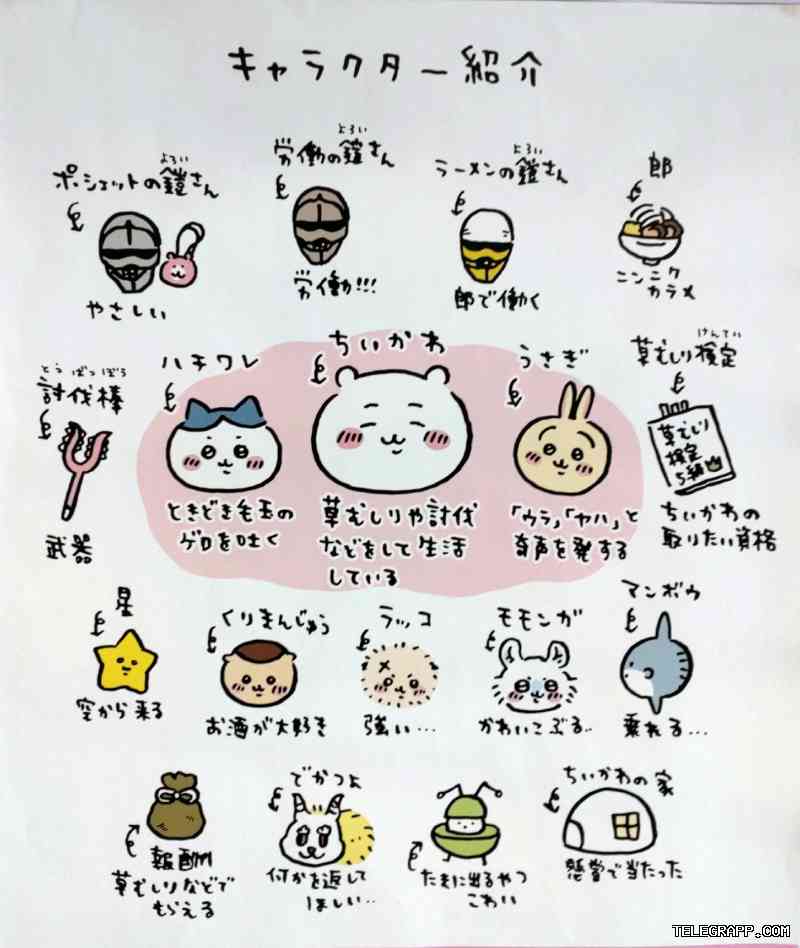 キャラクター紹介
よろい
ポシェットの鎧さん
やさしい
よろい
労働の鎧さん
労働!!!
よろい
ラーメンの鎧さん
郎で働く
郎
ニンニク
カラメ
とうばつぼう
討伐棒
武器
ハチワレ
ときどき毛玉の
ゲロを吐く
ちいかわ
草むしりや討伐
などをして生活
している
うさぎ
「ウラ」「ヤハ」と
奇声を発する
けんてい
草むしり検定
草むしり
検定
5級
ちいかわの
取りたい資格
星
空から来る
くりまんじゅう
お酒が大好き
ラッコ
強い…
モモンガ
かわいこぶる..
マンボウ
乗れる…
報酬
草むしりなどで
もらえる
でかつよ
何かを返して
ほしい…
たまに出るやつ
こわい
ちいかわの家
懸賞で当たった
TELEGRAPP.COM